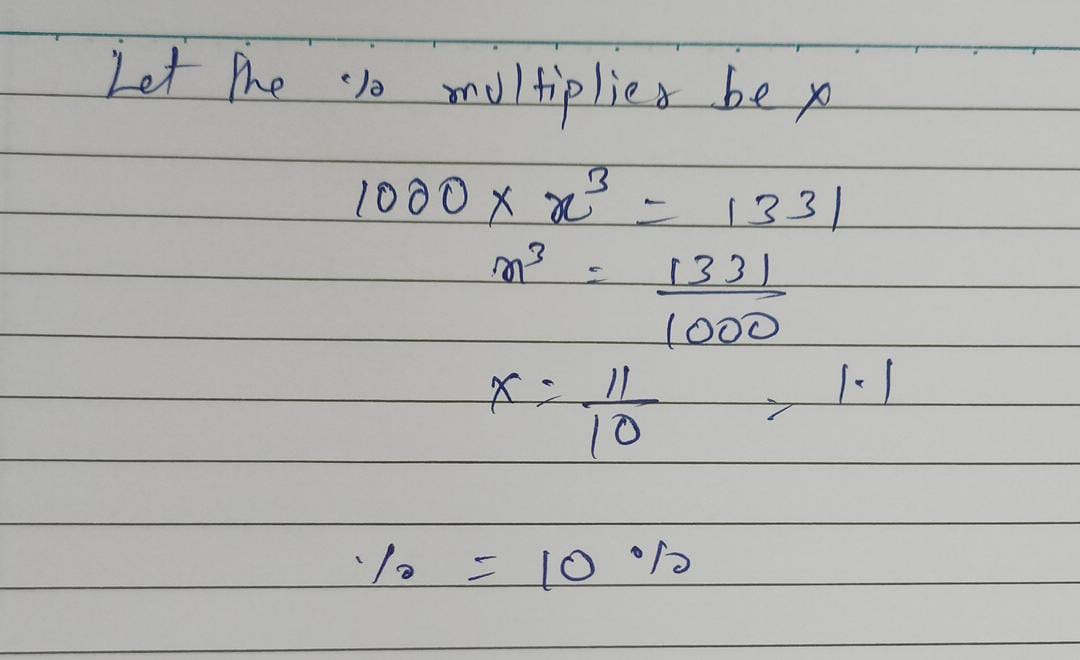 Let the % multiplier be x
1000 × x³ = 1331
x³ = 1331/1000
x = 11/10 = 1.1
% = 10 %